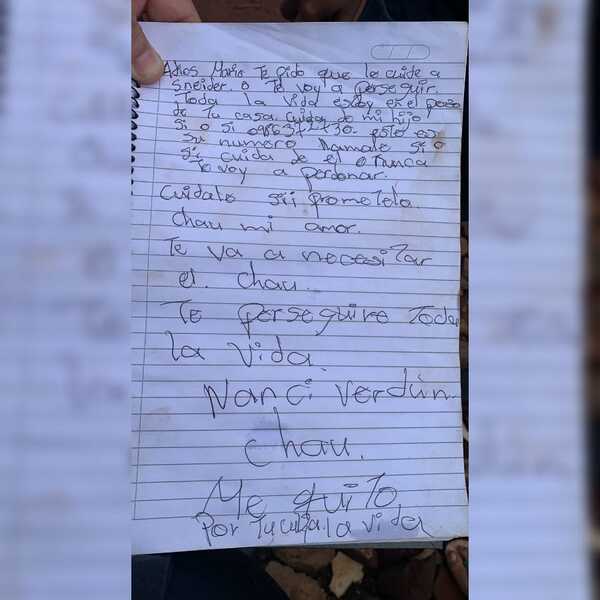 Adios Mario Te pido que le cuide a
Sneider. o Te voy a perseguir.
Toda la vida estoy en el pozo
de tu casa. cuida de mi hijo
Si o Si este es
su numero llamale si o
si cuida de el o nunca
Te voy a perdonar.
Cuidalo sii prometelo
chau mi amor.
Te va a necesitar
el. chau.
Te perseguire Toda
la vida.
Nanci verdún.
chau.
Me quito
Por tu culpa. la vida